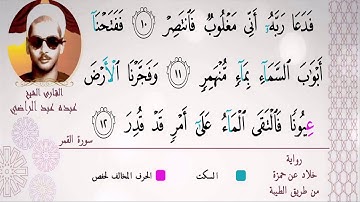 فَدَعَا رَبَّهُۥٓ أَنِّى مَغْلُوبٌ فَٱنتَصِرْ ١٠ فَفَتَحْنَآ
أَبْوَٰبَ ٱلسَّمَآءِ بِمَآءٍ مُّنْهَمِرٍ ١١ وَفَجَّرْنَا ٱلْأَرْضَ
عِيُونًا فَٱلْتَقَى ٱلْمَآءُ عَلَىٰٓ أَمْرٍ قَدْ قُدِرَ ١٢
القارئ الشيخ
عبده عبد الراضي
سورة القمر
رواية
خلاد عن حمزة
من طريق الطيبة
السكت
الحرف المخالف لحفص